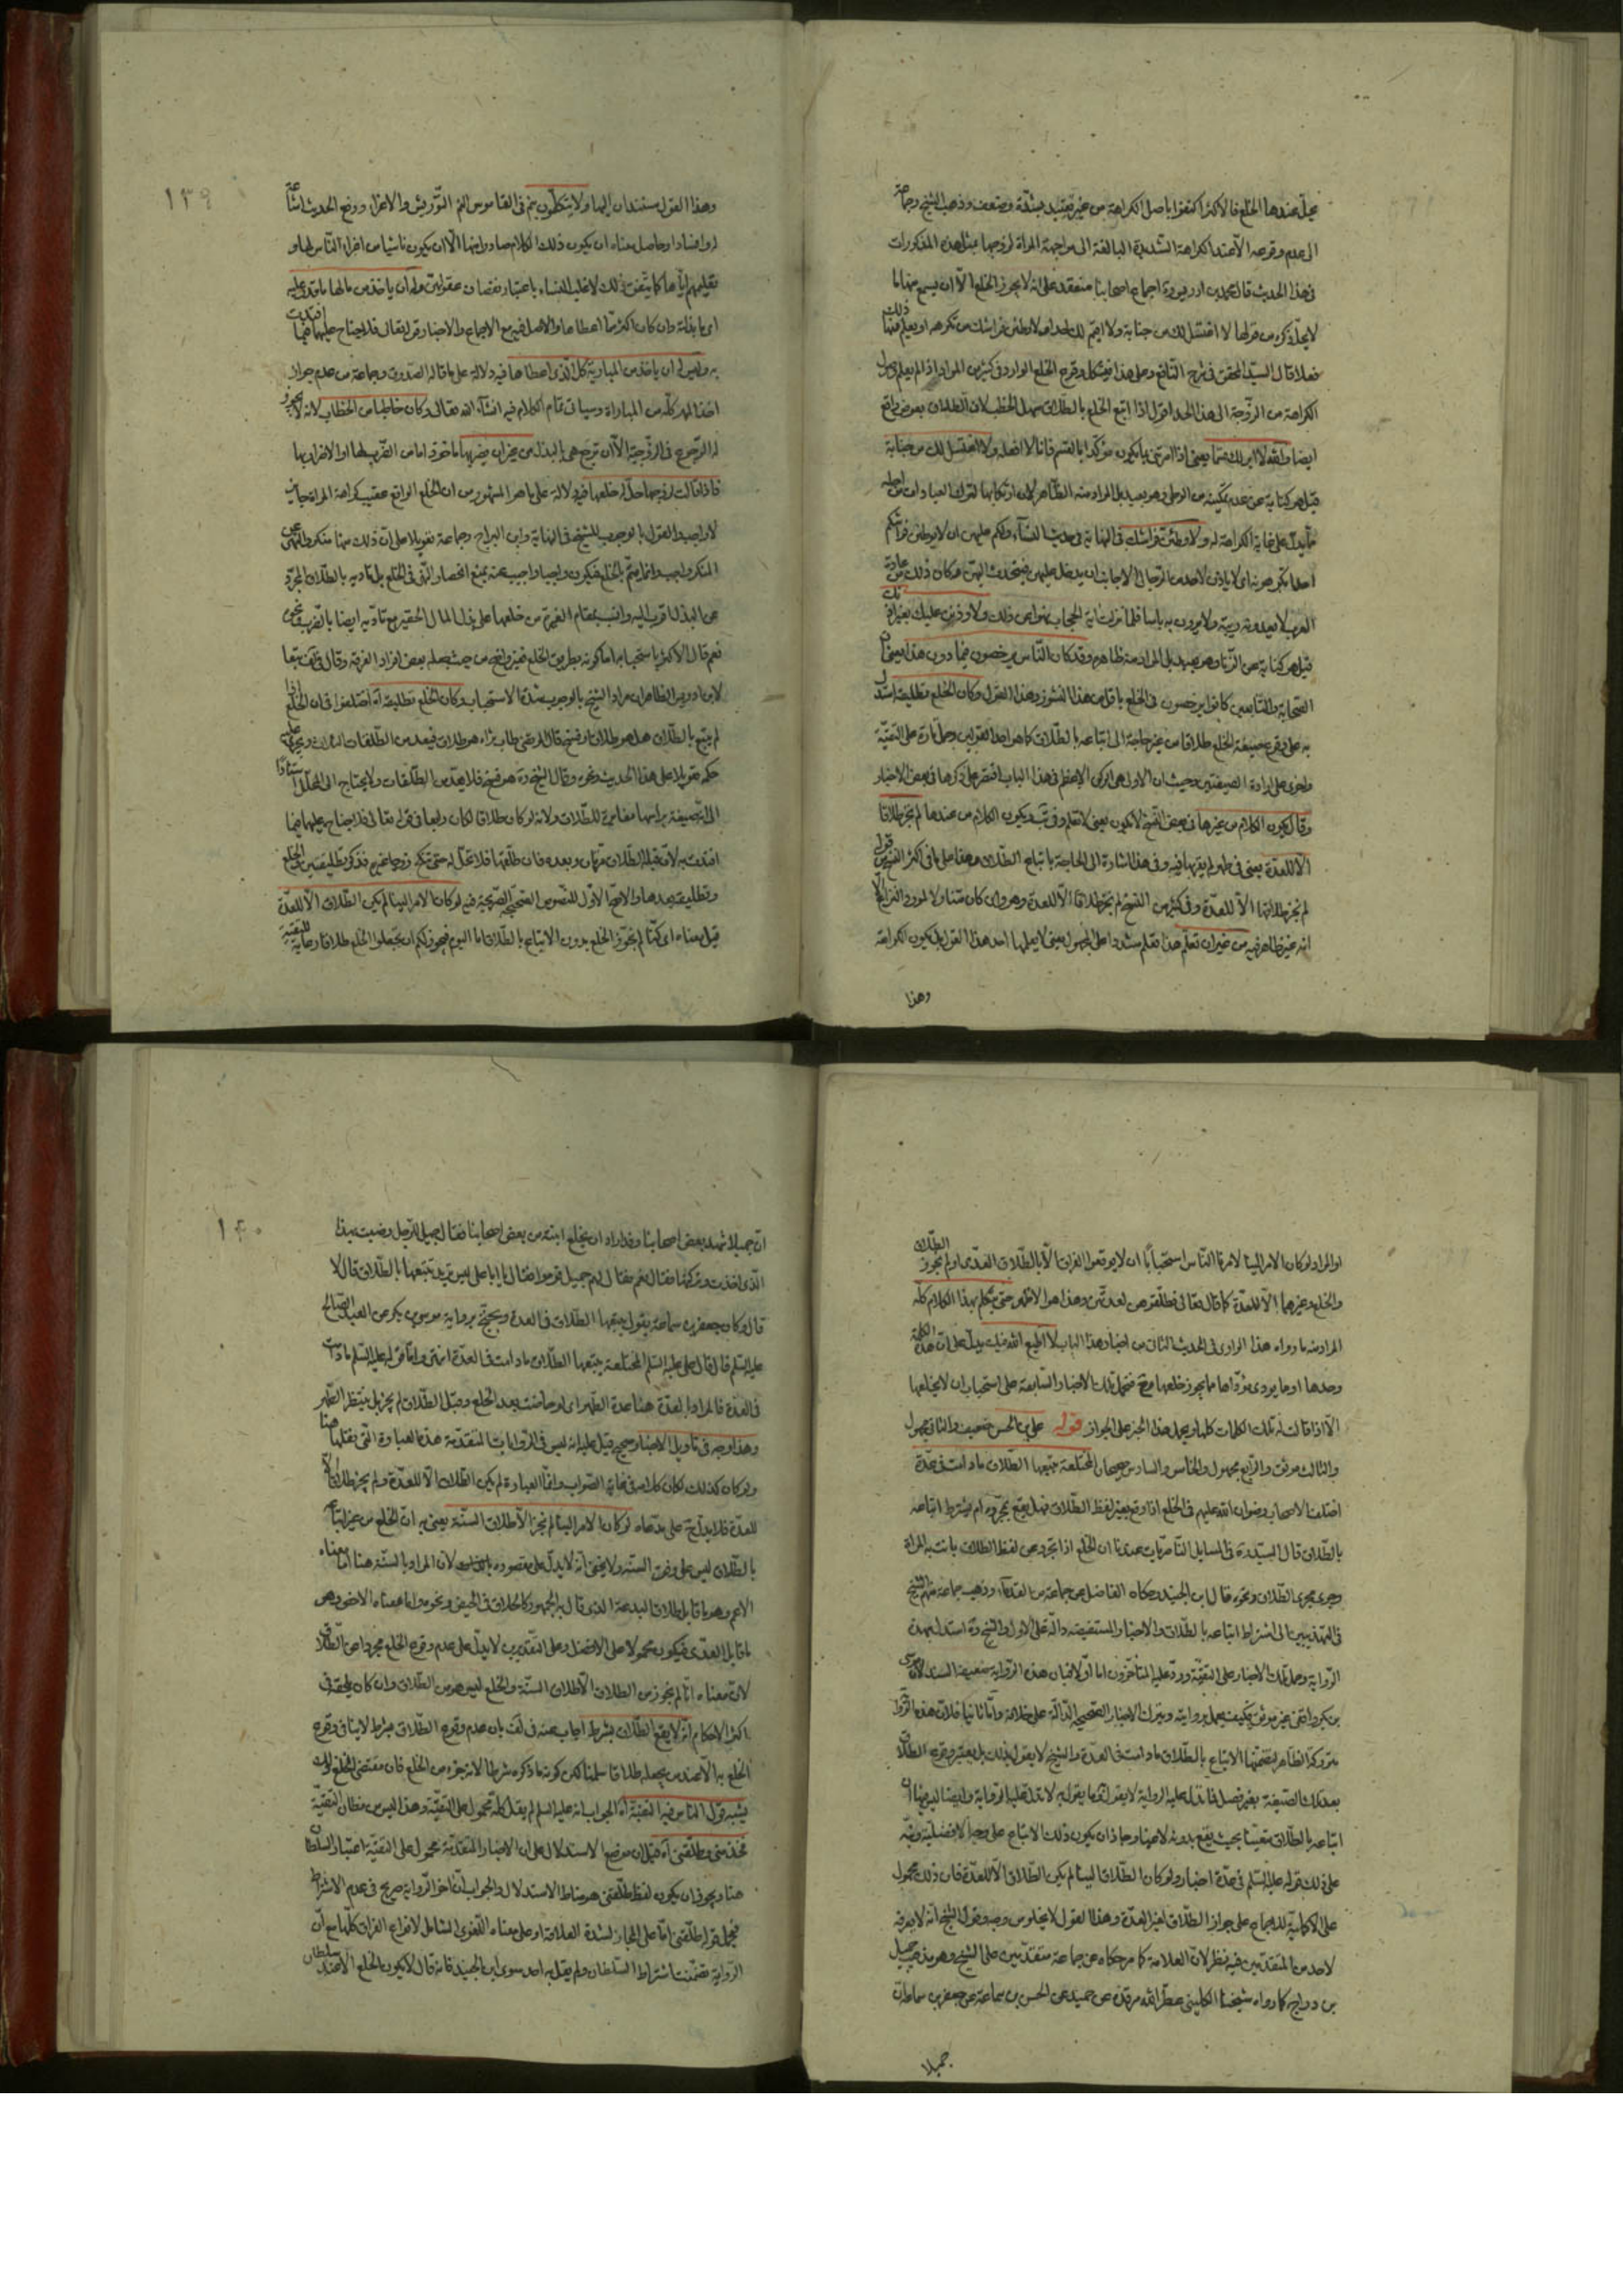 يحل عندها الخلع فالاكثر اكتفوا باصل الكراهة من غير تقييد بشدة وضعف وذهب الشيخ وجماعة
الى عدم وقوعه الا عند الكراهة الشديدة البالغة الى مواجهة المراة لزوجها بمثل هذه المذكورات
في هذا الحديث قال محمد بن ادريس ره اجماع اصحابنا منعقد على انه لا يجوز الخلع الا ان يسمع منها ما
لا يحل ذكره من قولها لا اغتسل لك من جنابة ولا اقيم لك حدا ولاوطئن فراشك من تكرهه او يعلم ذلك منها
فعلا قال السيد المحقق في شرح النافع وعلى هذا فيشكل وقوع الخلع الوارد في كثير من الموارد اذا لم يعلم وصول
الكراهة من الزوجة الى هذا الحد اقول اذا اتبع الخلع بالطلاق سهل الخطب لان الطلاق بعوض واقع
ايضا والله لا ابر لك قسما يعني اذا امرتني بما يكون مؤكدا بالقسم فانا لا افعله ولا اغتسل لك من جنابة
قيل هو كناية عن عدم تمكينه من الوطي وهو بعيد بل المراد منه الظاهر لان ارتكابها لترك العبادات من اجله
مما يدل على غاية الكراهة له ولاوطئن فراشك في النهاية في حديث النساء ولكم عليهن ان لا يوطئن فرشكم
احدا تكرهونه اى لا ياذن لاحد من الرجال الاجانب ان يدخل عليهن فيتحدث اليهن وكان ذلك من عادة
العرب لا يعدونه ريبة ولا يرون به باسا فلما نزلت اية الحجاب نهوا عن ذلك ولاوذنن عليك بغير اذنك
قيل هو كناية عن الزنا وهو بعيد بل المراد منه ظاهره وقد كان الناس يرخصون فيما دون هذا يعني ان
الصحابة والتابعين كانوا يرخصون في الخلع باقل من هذا النشوز وهذا القول وكان الخلع تطليقة استدل
به على وقوع صيغة الخلع طلاقا من غير حاجة الى اتباعه بالطلاق كما هو احد القولين وحمل تارة على التقية
واخرى على ارادة الصيغتين وحيث ان الاولى هي الركن الاعظم في هذا الباب اقتصر على ذكرها في بعض الاخبار
وقال يكون الكلام من عندها في بعض النسخ لا يكون يعني لا تعلم وفي يب يكون الكلام من عندها لم يجز طلاقا
الا للعدة يعني في طهر لم يقربها فيه وفي هذا اشارة الى الحاجة باتباع الطلاق هذا على ما في اكثر النسخ من قوله
لم نجز طلاقها الا للعدة وفي كثير من النسخ لم يجز طلاقا الا للعدة وهو وان كان متناولا لمورد النزاع الا
انه غير ظاهر فيه من غير ان تعلم هذا تعلم مشددا على المجهول يعني لا يعلمها احد هذا القول بل يكون الكراهة
وهذا
١٣٩
وهذا القول مستندان اليها ولا يتكلمون
له وافسادا وحاصل معناه ان يكون ذلك الكلام صادرا منها الا ان يكون ناشيا من اغراء الناس لها و
تعليمهم اياها كما يتفق ذلك لاغلب النساء باعتبار نقصان عقولهن وله ان ياخذ من مالها ما قدر عليه
اى ما بذلته وان كان اكثر مما اعطاها والاصل فيه مع الاجماع والاخبار قوله تعالى فلا جناح عليهما فيما افتدت
به وليس له ان ياخذ من المبارية كل الذي اعطاها فيه دلالة على ما قاله الصدوق وجماعة من عدم جواز
اخذ المهر كله من المباراة وسياتي تمام الكلام فيه انشاء الله تعالى وكان خاطبا من الخطاب لانه لا يجوز
له الرجوع في الزوجية الا ان ترجع هي بالبذل من غير ان يضربها ماخوذ اما من الضرب لها او الاضرار بها
فاذا قالت لزوجها حل له خلعها فيه دلالة على ما هو المشهور من ان الخلع الواقع عقيب كراهة المراة جايز
لا واجب والقول بالوجوب للشيخ في النهاية وابن البراج وجماعة تعويلا على ان ذلك منها منكر والنهي عن
المنكر واجب وانما يتم بالخلع فيكون واجبا واجيب عنه بمنع انحصار النهي في الخلع بل تاديه بالطلاق المجرد
عن البذل اقرب اليه وانسب بمقام الغيرة من خلعها على بذل المال الحقير مع تاديه ايضا بالضرب ونحوه
نعم قال الاكثر باستحبابه اما كونه بطريق الخلع فغير واضح من حيث جعله بعض افراد الفرقة وقال في لف تبعا
لابن ادريس الظاهر ان مراد الشيخ بالوجوب شدة الاستحباب وكان الخلع تطليقة اه اختلفوا في ان الخلع اذا
لم يتبع بالطلاق هل هو طلاق او فسخ قال المرتضى طاب ثراه هو طلاق فيعد من الطلقات الثلاث ويجرى عليه
حكمه تعويلا على هذا الحديث ونحوه وقال الشيخ ره هو فسخ فلا يعد من الطلقات ولا يحتاج الى المحلل استنادا
الى ان صيغته براسها مغايرة للطلاق ولانه لو كان طلاقا لكان رابعا في قوله تعالى فلا جناح عليهما فيما
افتدت به لان قبله الطلاق مرتان وبعده فان طلقها فلا تحل له حتى تنكح زوجا غيره فذكر تطليقتين والخلع
وتطليقة بعدها والاصح الاول للنصوص الصحيحة الصريحة فيه لو كان الامر الينا لم يكن الطلاق الا للعدة
قيل معناه اى كنا لم نجوز الخلع بدون الاتباع بالطلاق اما اليوم فيجوز لكم ان تجعلوا الخلع طلاقا رعاية للتقية
او المراد لو كان الامر الينا لامرنا الناس استحبابا ان لا يوقعوا الفراق الا بالطلاق العدى ولم نجوز الطلاق
والخلع وغيرهما الا للعدة كما قال تعالى فطلقوهن لعدتهن وهذا هو الاظهر حتى يتكلم بهذا الكلام كله
المراد منه ما رواه هذا الراوى في الحديث الثاني من اخبار هذا الباب لا اطيع الله فيك يدل على ان هذه الكلمة
وحدها او ما يودى مؤداها مما يجوز خلعها معه فتحمل تلك الاخبار السابقة على استحباب ان لا يخلعها
الا اذا قالت له تلك الكلمات كلها ويحمل هذا الخبر على الجواز قوله على بن الحسن ضعيف والثاني مجهول
والثالث موثق والرابع مجهول والخامس والسادس صحيحان المختلعة يتبعها الطلاق ما دامت في عدة
اختلف الاصحاب رضوان الله عليهم في الخلع اذا وقع بغير لفظ الطلاق فهل يقع بمجرده ام يشترط اتباعه
بالطلاق قال السيد ره في المسايل الناصريات عندنا ان الخلع اذا تجرد عن لفظ الطلاق بانت به المراة
وجرى مجرى الطلاق ونحوه قال ابن الجنيد وحكاه الفاضل عن جماعة من القدماء وذهب جماعة منهم الشيخ
في التهذيبين الى اشتراط اتباعه بالطلاق والاخبار المستفيضة دالة على الاول والشيخ ره استدل بهذه
الرواية وحمل تلك الاخبار على التقية ورد عليه المتاخرون اما اولا فبان هذه الرواية ضعيفة السند لان موسى
بن بكر واقفى غير موثق فكيف يعمل بروايته وبترك الاخبار الصحيحة الدالة على خلافه واما ثانيا فلان هذه الرواية
متروكة الظاهر لتضمنها الاتباع بالطلاق ما دامت في العدة والشيخ لا يقول بذلك بل يعتبر وقوع الطلاق
بعد تلك الصيغة بغير فصل فما تدل عليه الرواية لا يقول به وما يقول به لا تدل عليه الرواية وايضا ليس فيها ان
اتباعه بالطلاق متعينا بحيث يقع بدونه لاغيا وجاز ان يكون ذلك الاتباع على وجه الافضلية ونبه
على ذلك بقوله عليه السلم في عدة اخبار ولو كان الطلاق الينا لم يكن الطلاق الا للعدة فان ذلك محمول
على الاكملية للاجماع على جواز الطلاق لغير العدة وهذا القول لا يخلو من وجه وقول الشيخ انه لا يعرفه
لاحد من المتقدمين فيه نظر لان العلامة كما مر حكاه عن جماعة متقدمين على الشيخ وهو مذهب جميل
بن دراج كما رواه شيخنا الكليني عطر الله مرقده عن حميد عن الحسن بن سماعة عن جعفر بن سماعة ان
جميلا
١٤٠
ان جميلا شهد بعض اصحابنا وقد اراد ان يخلع ابنته من بعض اصحابنا فقال جميل للرجل رضيت بهذا
الذى اخذت وتركتها فقال نعم فقال لهم جميل قوموا فقال يا ابا على ليس تريد تتبعها بالطلاق قال لا
قال وكان جعفر بن سماعة يقول يتبعها الطلاق في العدة ويحتج برواية موسى بن بكر عن العبد الصالح
عليه السلم قال قال على عليه السلم المختلعة يتبعها الطلاق ما دامت في العدة انتهى واما قوله عليه السلم ما دامت
في العدة فالمراد بالعدة هنا عدة الطهر اى لو حاضت بعد الخلع وقبل الطلاق لم يجز بل ينتظر الطهر
وهذا وجه في تاويل الاخبار صحيح قيل عليه انه ليس في الروايات المتقدمة هذه العبارة التي نقلها هنا
ولو كان كذلك لكان كلامه في غاية الصواب وانما العبارة لم يكن الطلاق الا للعدة ولم يجز طلاقا الا
للعدة فلا يدل حجة على مدعاه لو كان الامر الينا لم نجز الا طلاق السنة يعني به ان الخلع من غير اتباع
بالطلاق ليس على وفق السنة ولا يخفى انه لا يدل على مقصوده لان المراد بالسنة هنا اما معناه
الاعم وهو ما قابل طلاق البدعة الذى قال به الجمهور كالطلاق في الحيض ونحوه واما معناه الاخص وهو
ما قابل العدى فيكون محمولا على الافضل وعلى التقديرين لا يدل على عدم وقوع الخلع مجردا عن الطلاق
لان معناه انا لم نجوز من الطلاق الا طلاق السنة والخلع ليس هو من الطلاق وان كان يلحقه في
اكثر الاحكام انه لا يقع الطلاق بشرط اجاب عنه في لف بان عدم وقوع الطلاق بشرط لا ينافي وقوع
الخلع به الا عند من يجعله طلاقا سلمنا لكن كون ما ذكره شرطا لانه جزء من الخلع فان مقتضى الخلع ذلك
يشبه قول الناس فيه التقية اه الجواب انه عليه السلم لم يقل كله محمول على التقية وهذا ليس من مظان التقية
فخذ مني وطلقني اه قيل ان موضع الاستدلال على ان الاخبار المتقدمة محمول على التقية اعتبار السلطان
هنا ويجوز ان يكون لفظ طلقني هو مناط الاستدلال والجواب ان اخر الرواية صريح في عدم الاشتراط
فيحمل قوله طلقني اما على المجاز لشدة العلاقة او على معناه اللغوى الشامل لانواع الفراق كلها مع ان
الرواية تضمنت اشتراط السلطان ولم يقل به احد سوى ابن الجنيد فانه قال لا يكون الخلع الا عند سلطان